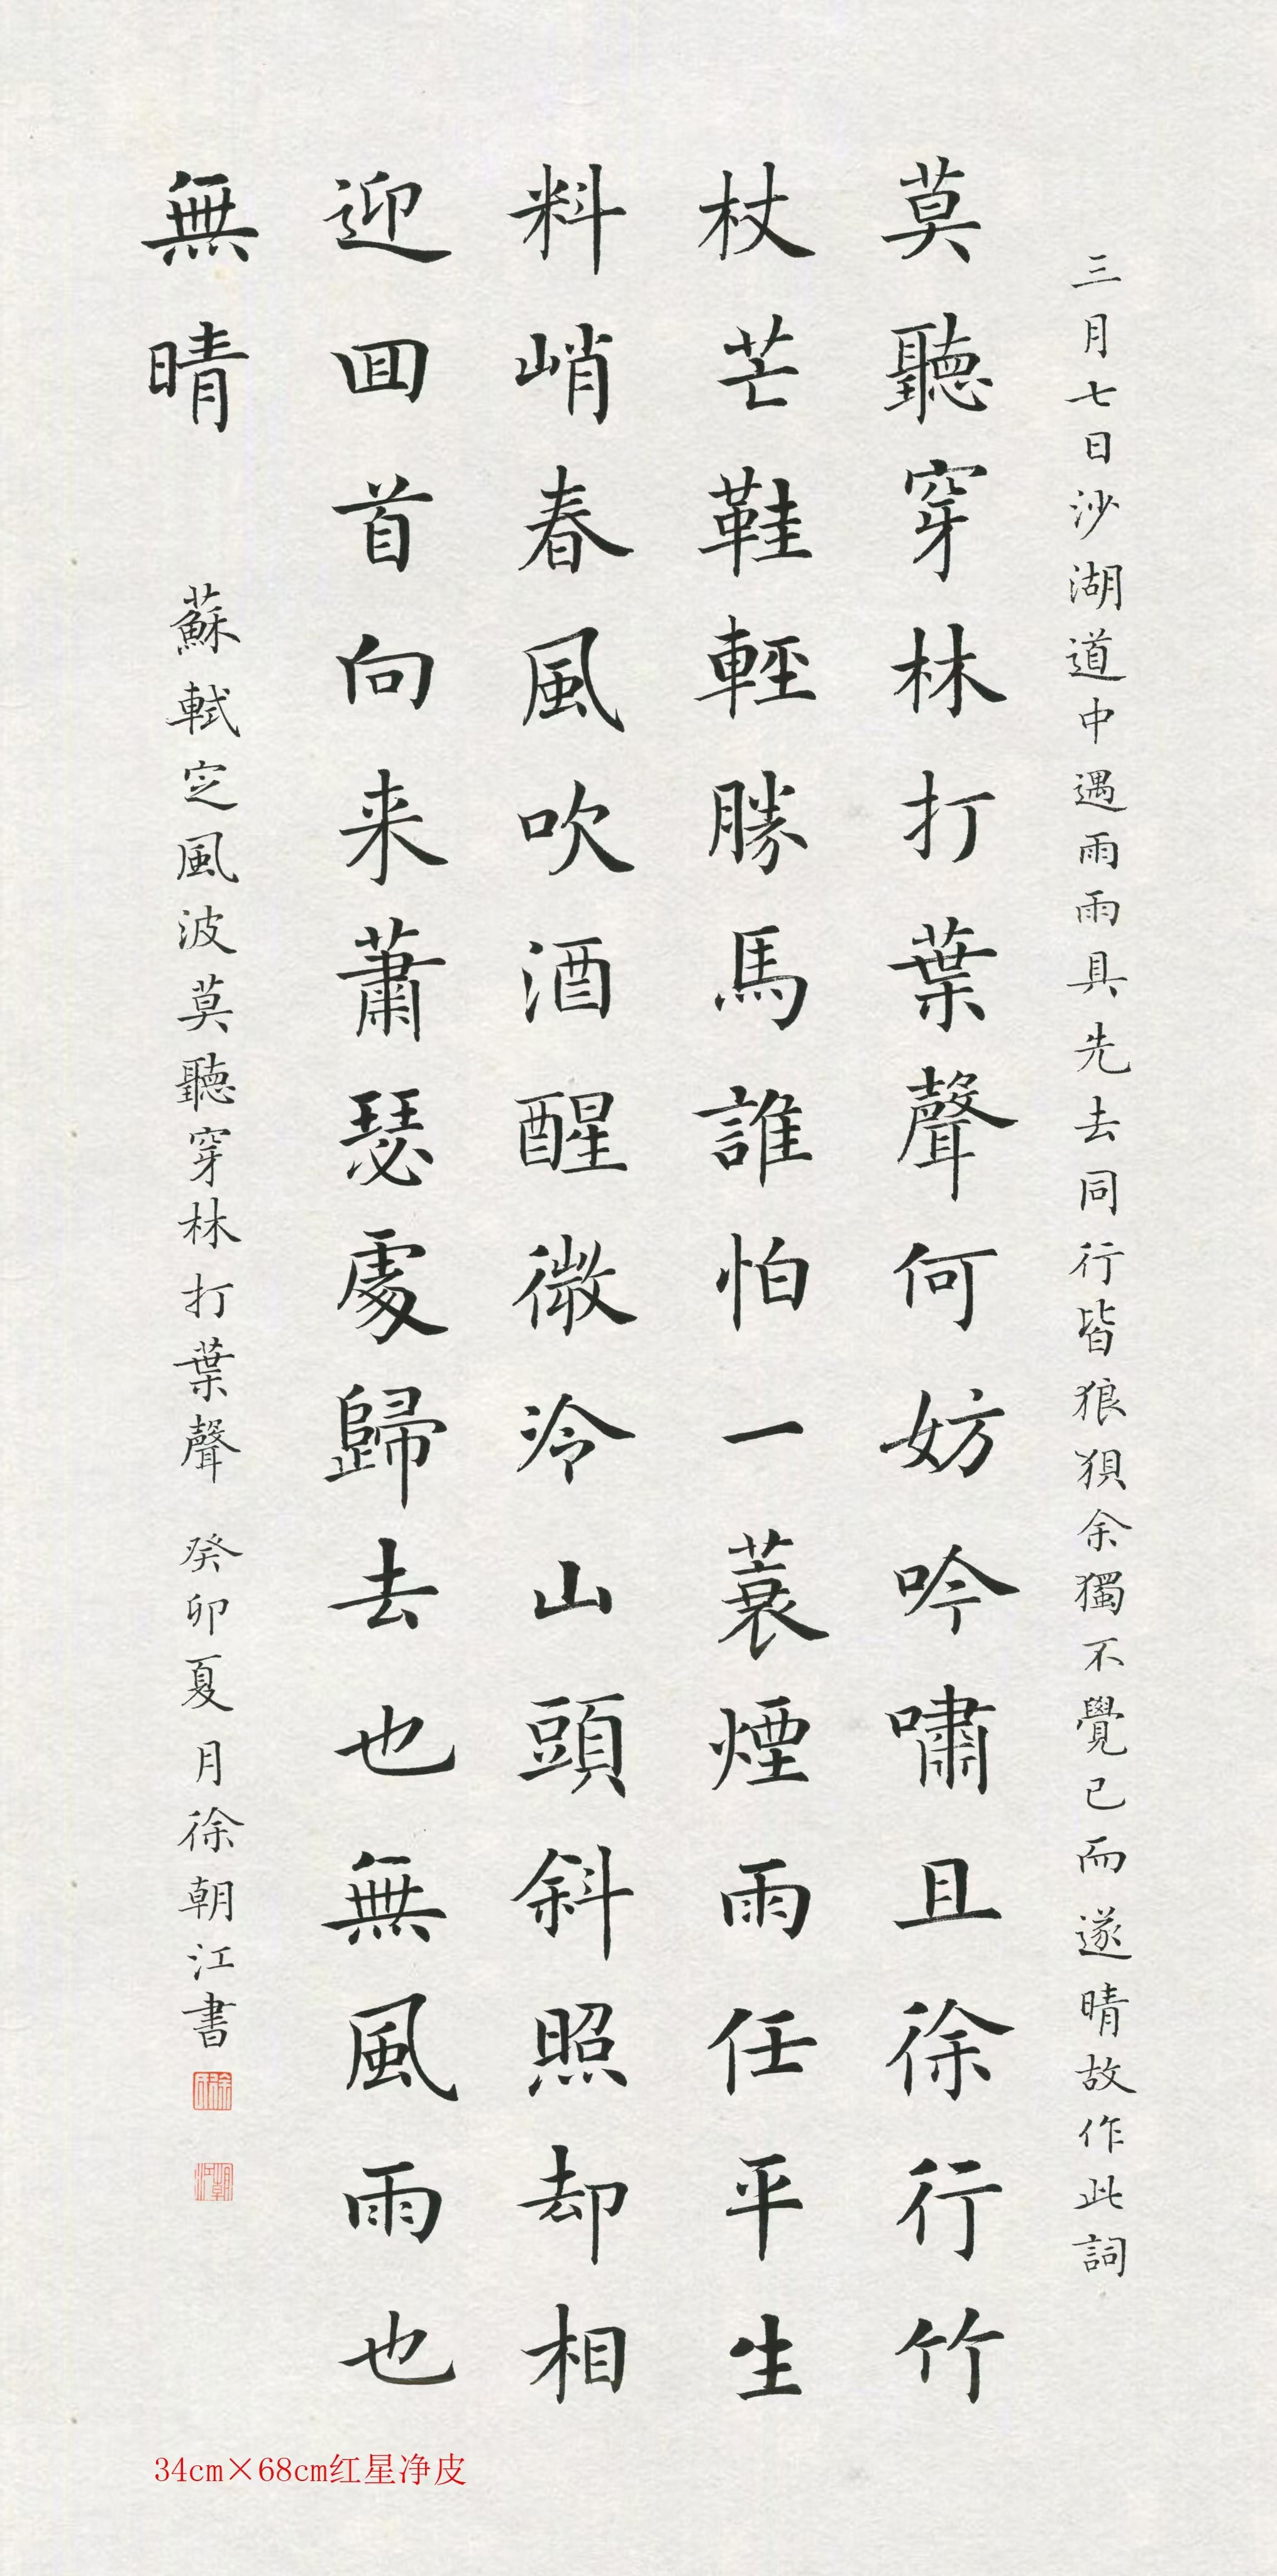 三月七日沙湖道中遇雨雨具先去同行皆狼狽余獨不覺已而遂晴故作此詞
莫聽穿林打葉聲何妨吟嘯且徐行竹
杖芒鞋輕勝馬誰怕一蓑煙雨任平生
料峭春風吹酒醒微冷山頭斜照却相
迎囬首向来蕭瑟處歸去也無風雨也
無晴
蘇軾定風波莫聽穿林打葉聲 癸卯夏月徐朝江書
34cm×68cm红星净皮